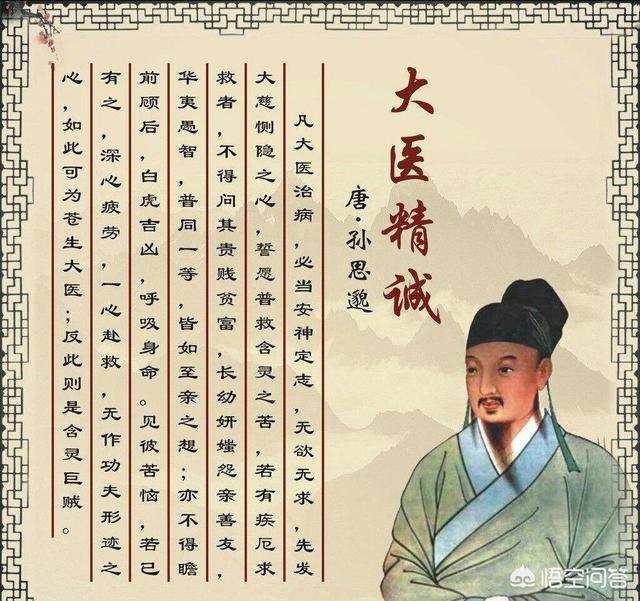 大医精诚
唐·孙思邈
凡大医治病，必当安神定志，无欲无求，先发
大慈恻隐之心，誓愿普救含灵之苦，若有疾厄求
救者，不得问其贵贱贫富，长幼妍媸怨亲善友，
华夷愚智，普同一等，皆如至亲之想；亦不得瞻
前顾后，白虎吉凶，呼吸身命。见彼苦恼，若已
有之，深心疲劳，一心赴救，无作功夫形迹之
心，如此可为苍生大医；反此则是含灵巨贼。
悟空问答